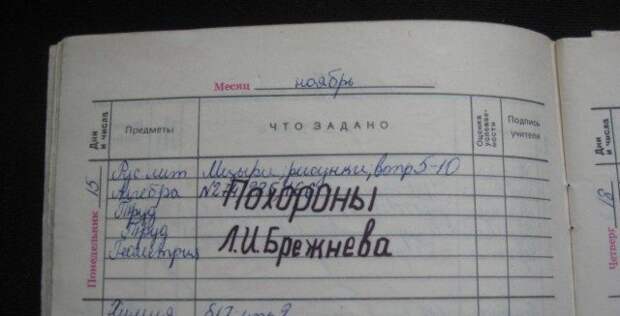 Месяц ноябрь
Дни и числа Предметы ЧТО ЗАДАНО Оценка успеваемости Подпись учителя Дни и числа
Понедельник 15 Рус лит Мцыри, рисунки, вопр 5-10
Алгебра №
Похороны
Труд
Труд
Геометрия
Л.И.Брежнева
Химия
Четверг 18